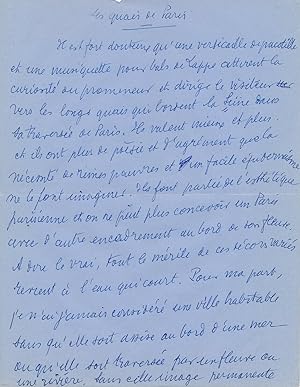 Les quais de Paris
Il est fort douteux qu'une versicaille de pacotille
et une musiquette pour bals de Lappe attirent la
curiosité du promeneur et dirige le visiteur
vers les longs quais qui bordent la Seine dans
la traversée de Paris. Ils valent mieux et plus.
et ils ont plus de poésie et d'agrément que la
de rimes pauvres et un facile
ne le font imaginer. Ils font partie de l'esthétique
parisienne et on ne peut plus concevoir un Paris
avec d'autre encadrement au bord de son fleuve.
A dire le vrai, tout le mérite de ces
revient à l'eau qui court. Pour ma part,
je n'ai jamais considéré une ville habitable
sans qu'elle soit assise au bord d'une mer
ou qu'elle soit traversée par un fleuve ou
une rivière, sans cette image permanente